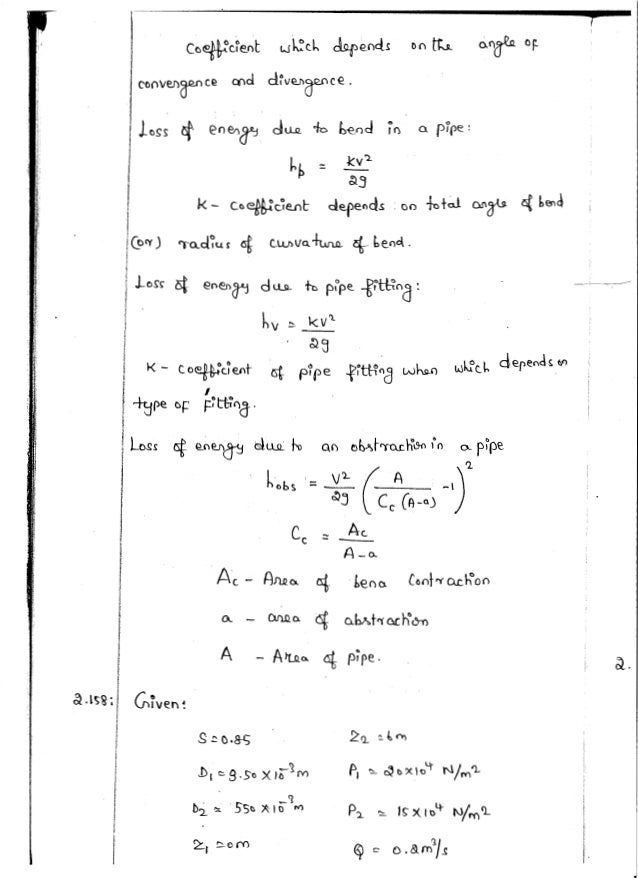 Coefficient which depends on the angle of
convergence and divergence.
Loss of energy due to bend in a pipe:
hb = kv²/2g
K - coefficient depends on total angle of bend
(or) radius of curvature of bend.
Loss of energy due to pipe fitting:
hv = kv²/2g
K - coefficient of pipe fitting when which depends on
type of fitting.
Loss of energy due to an obstraction in a pipe
hobs = V²/2g (A/Cc (A-a) -1)²
Cc = Ac/A-a
Ac - Area of bena Contraction
a - area of abstraction
A - Area of pipe.
2.
2.158: Given:
S=0.85 Z2 =6m
D1 = 3.50 X 10⁻³m P1 = 20x10⁴ N/m2
D2 = 550 X 10⁻³m P2 = 15X10⁴ N/m2
Z1 =0m Q = 0.2m³/s